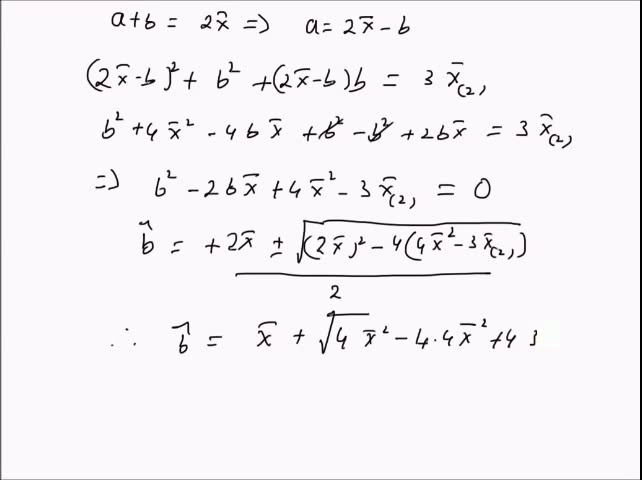 a+b = 2x̄ => a = 2x̄-b
(2x̄-b)² + b² + (2x̄-b)b = 3 x̄(2)
b² + 4x̄² - 4bx̄ + b² - b² + 2bx̄ = 3 x̄(2)
=> b² - 2bx̄ + 4x̄² - 3x̄(2) = 0
b̂ = +2x̄ ± √((2x̄)² - 4(4x̄² - 3x̄(2)))
2
∴ b̂ = x̄ + √4 x̄² - 4.4x̄² + 4 3